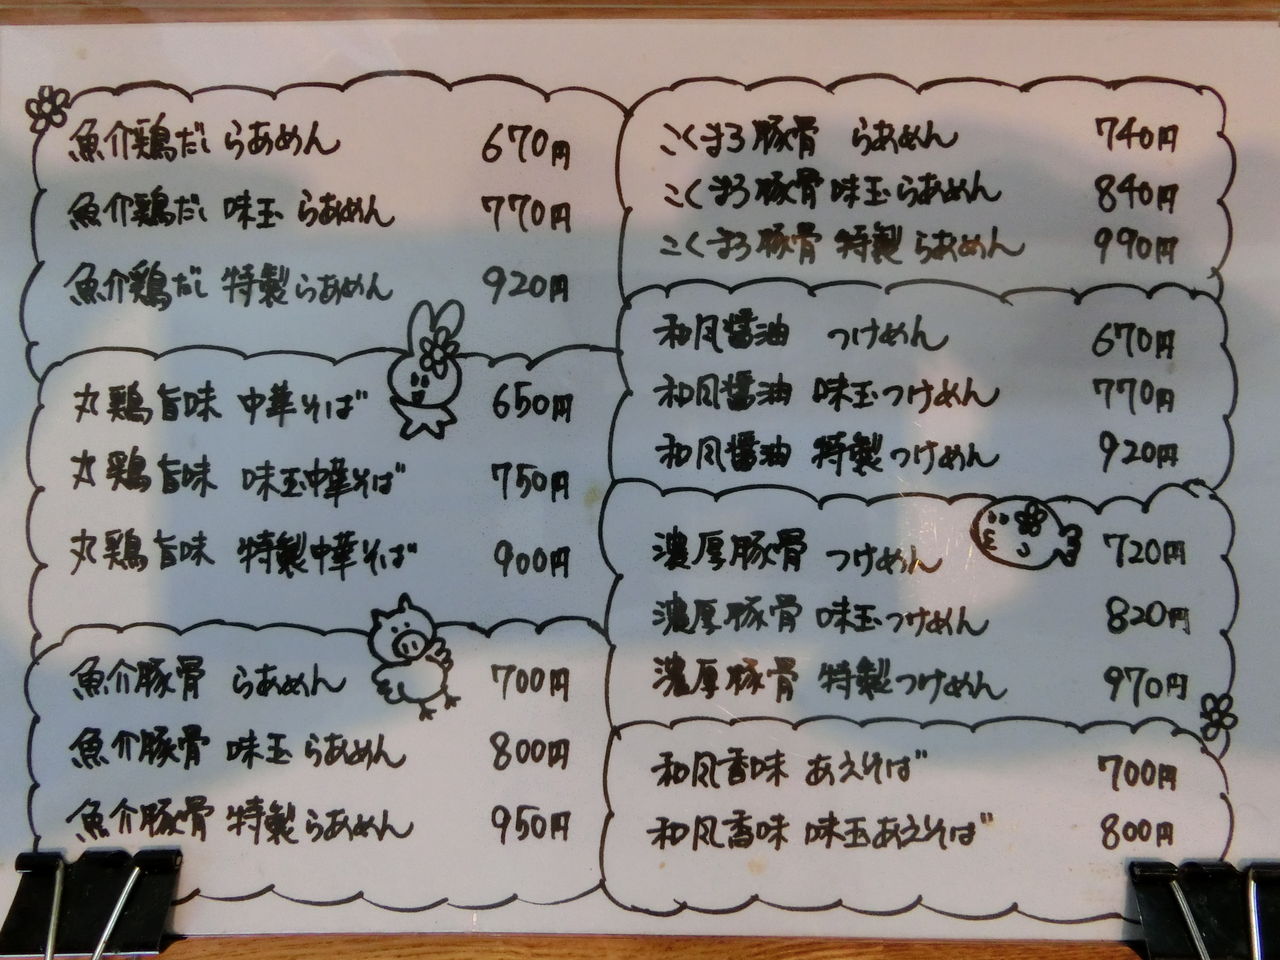 魚介鶏だし らあめん 670円
魚介鶏だし 味玉 らあめん 770円
魚介鶏だし 特製らあめん 920円
丸鶏旨味 中華そば 650円
丸鶏旨味 味玉中華そば 750円
丸鶏旨味 特製中華そば 900円
魚介豚骨 らあめん 700円
魚介豚骨 味玉らあめん 800円
魚介豚骨 特製らあめん 950円
こくまろ豚骨 らあめん 740円
こくまろ豚骨 味玉らあめん 840円
こくまろ豚骨 特製らあめん 990円
和風醤油 つけめん 670円
和風醤油 味玉つけめん 770円
和風醤油 特製つけめん 920円
濃厚豚骨 つけめん 720円
濃厚豚骨 味玉つけめん 820円
濃厚豚骨 特製つけめん 970円
和風香味 あえそば 700円
和風香味 味玉あえそば 800円